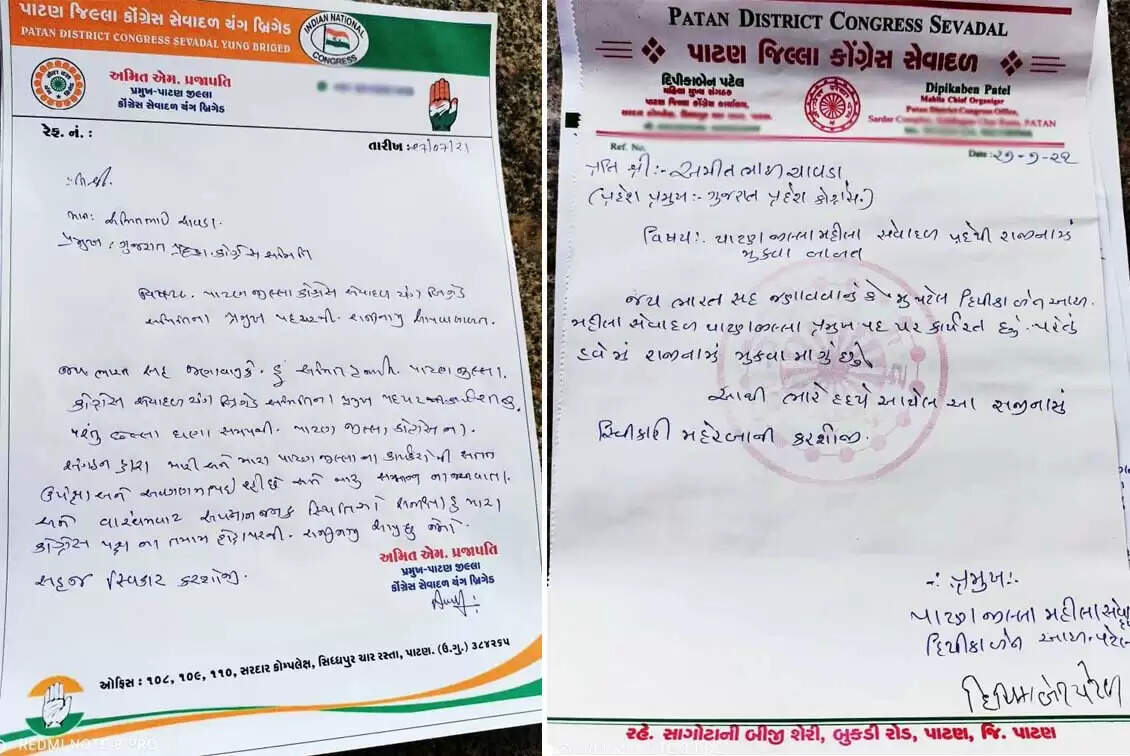 પાટણ જિલ્લા કોંગ્રેસ સેવાદળ યંગ બ્રિગેડ
PATAN DISTRICT CONGRESS SEVADAL YUNG BRIGED
INDIAN NATIONAL CONGRESS
અમિત એમ. પ્રજાપતિ
પ્રમુખ-પાટણ જીલ્લા
કોંગ્રેસ સેવાદળ યંગ બ્રિગેડ
રેફ. નં. :
તારીખ : 27/07/21
પ્રતિશ્રી.
માન: અમિતભાઈ ચાવડા.
પ્રમુખ : ગુજરાત પ્રદેશ કોંગ્રેસ સમિતિ
વિષય. પાટણ જીલ્લા કોંગ્રેસ સેવાદળ યંગ બ્રિગેડ
સમિતિના પ્રમુખ પદ પરથી. રાજીનામુ આપવા બાબત.
જય ભારત સહ જણાવવાનુકે. હું અમિત પ્રજાપતિ. પાટણ જીલ્લા.
કોંગ્રેસ સેવાદળ યંગ બ્રિગેડ સમિતિના પ્રમુખ પદ પર
પરંતુ છેલ્લા ઘણા સમયથી. પાટણ જીલ્લા કોંગ્રેસ ના.
સંગઠન દ્વારા મારી અને મારા પાટણ જીલ્લા ના કાર્યકરોની સતત
ઉપેક્ષા અને અવગણના થઈ રહી છે અને મારુ સન્માન ના જળવાતા.
અને વારંવાર અપમાનજનક સ્થિતિઓ હું મારા
કોંગ્રેસ પક્ષ ના તમામ હોદ્દા પરથી. રાજીનામુ આપુ છુ જેનો
સહજ સ્વિકાર કરશોજી.
અમિત એમ. પ્રજાપતિ
પ્રમુખ-પાટણ જીલ્લા
કોંગ્રેસ સેવાદળ યંગ બ્રિગેડ
ઓફિસ : ૧૦૮, ૧૦૯, ૧૧૦, સરદાર કોમ્પલેક્ષ, સિધ્ધપુર ચાર રસ્તા, પાટણ. (ઉ.ગુ.) ૩૮૪૨૬૫
REDMI NOTE 8 PRO
PATAN DISTRICT CONGRESS SEVADAL
પાટણ જિલ્લા કોંગ્રેસ સેવાદળ
દિપીકાબેન પટેલ
મહિલા મુખ્ય સંગઠક
પાટણ જિલ્લા કોંગ્રેસ કાર્યાલય,
Dipikaben Patel
Mahila Chief Organiser
Patan District Congress Office,
Sardar Complex, PATAN
Ref. No.
Date : ૨૭-૭-૨૨
પ્રતિ શ્રી :- અમીતભાઈ ચાવડા
(પ્રદેશ પ્રમુખ :- ગુજરાત પ્રદેશ કોંગ્રેસ.)
વિષય :. પાટણ જીલ્લા મહીલા સેવાદળ પદેથી રાજીનામું
મુકવા બાબત
જય ભારત સહ જણાવવાનું કે હું પટેલ દિપીકાબેન આર.
મહીલા સેવાદળ પાટણ જીલ્લા પ્રમુખ પદ પર કાર્યરત છું. પરંતુ
હવે હું રાજીનામું મુકવા માગું છું.
આથી ભારે હ્રદયે આપેલ આ રાજીનામું
સ્વિકારી મહેરબાની કરશોજી.
-: પ્રમુખ :-
પાટણ જીલ્લા મહીલા સેવાદળ
દિપીકાબેન આર. પટેલ
દિપીકાબેન પટેલ
રહે. સાગોટાની બીજી શેરી, બુકડી રોડ, પાટણ, જિ. પાટણ